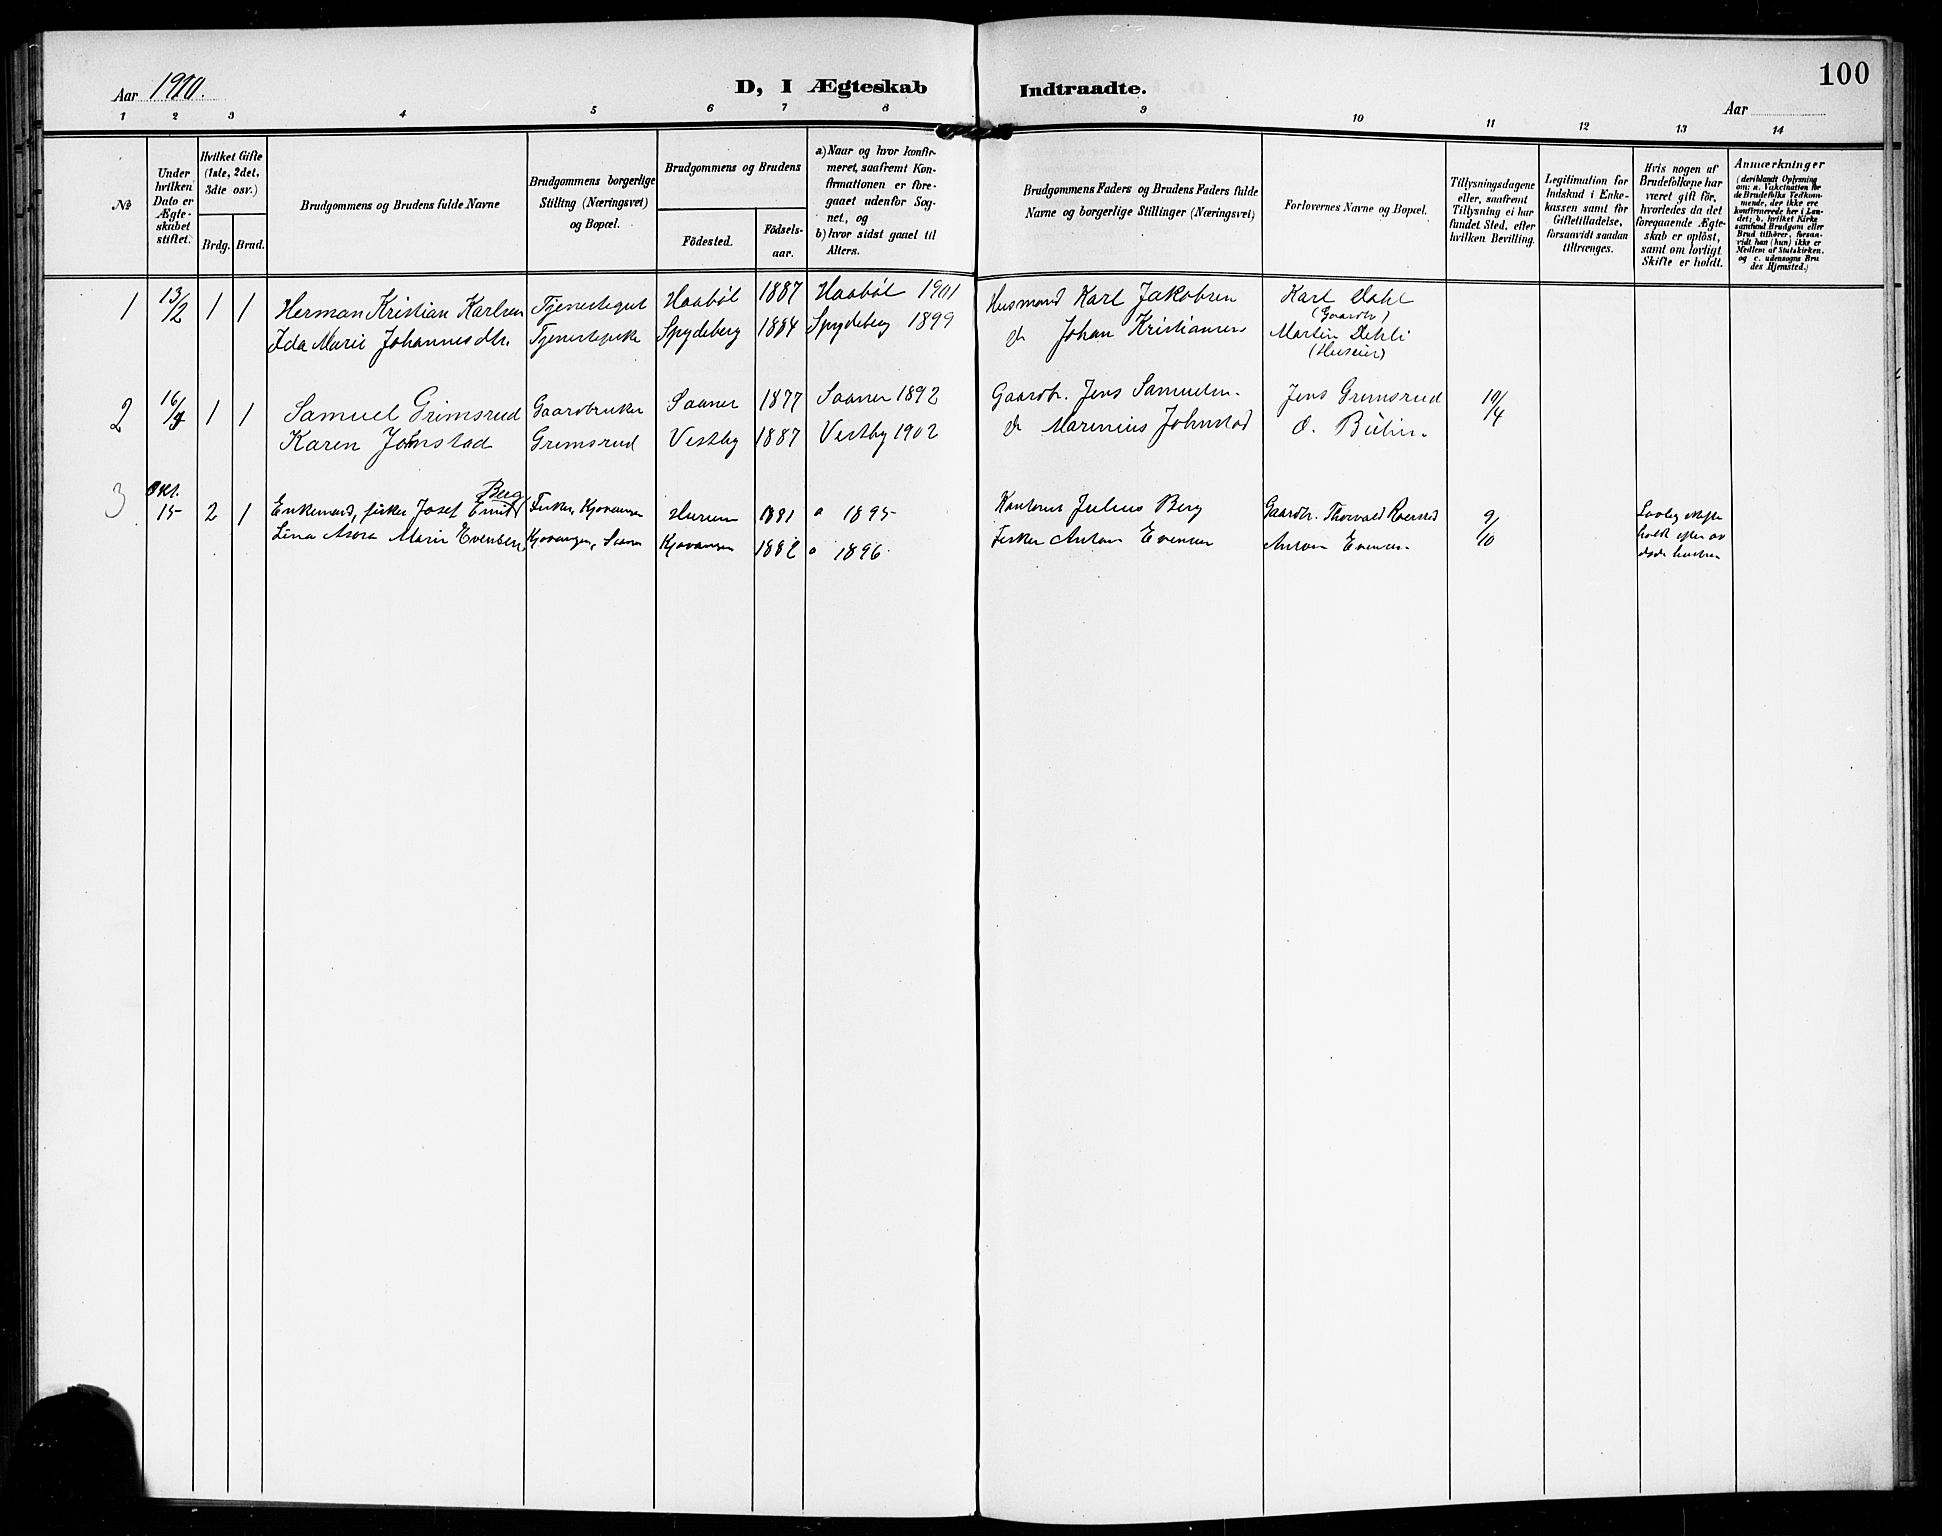 100
Aar 1910.
D, I Ægteskab Indtraadte.
Aar
1 2 3 4 5 6 7 8 9 10 11 12 13 14
№
Under hvilken Dato er Ægteskabet stiftet.
Hvilket Gifte (1ste, 2det, 3die osv.)
Brdg. Brud.
Brudgommens og Brudens fulde Navne
Brudgommens borgerlige Stilling (Næringsvei) og Bopæl.
Brudgommens og Brudens
Födested.
Födselsaar.
a) Naar og hvor konfirmeret, saafremt Konfirmationen er foregaaet udenfor Sognet, og
b) hvor sidst gaaet til Alters.
Brudgommens Faders og Brudens Faders fulde Navne og borgerlige Stillinger (Næringsvei)
Forlovernes Navne og Bopæl.
Tillysningsdagene eller, saafremt Tillysning ei har fundet Sted, efter hvilken Bevilling.
Legitimation for Indskud i Enkekassen samt for Giftetilladelse, forsaavidt saadan tiltrænges.
Hvis nogen af Brudefolkene har været gift för, hvorledes da det foregaaende Ægteskab er oplöst, samt om lovligt Skifte er holdt.
Anmærkninger
(deriblandt Oplysning om: a. Vakcination for de Brudefolks Vedkommende, der ikke ere konfirmerede her i Landet; b. hvilket Kirkesamfund Brudgom eller Brud tilhörer, forsaavidt han (hun) ikke er Medlem af Statskirken, og c. udensogns Brudes Hjemsted.)
1 13/2 1 1 Herman Kristian Karlsen Tjenestegut Haabøl 1887 Haabøl 1901 Husmand Karl Jakobsen Karl Dahl
(Gaardbr)
Ida Marie Johannesdtr. Tjenestepike Spydeberg 1884 Spydeberg 1899 do Johan Kristiansen Martin Dehli
(Huseier)
2 16/4 1 1 Samuel Grimsrud Gaardbruker Saaner 1877 Saaner 1892 Gaardbr. Jens Samuelsen Jens Grimsrud 10/4
Karen Johnstad Grimsrud Vestby 1887 Vestby 1902 do Marinius Johnstad O.
3 Okt. 15 2 1 Enkemand, fisker Josef Emil Berg Fisker, Kjøvangen Hurum 1881 a 1895 Julius Berg Gaardbr. Thorvald 9/10 Lovlig skifte
Lina Marie Evensen, Kjøvangen, Saaner Kjøvangen 1882 a 1896 Fisker Anton Evensen Anton Evensen holdt efter av
døde hustru